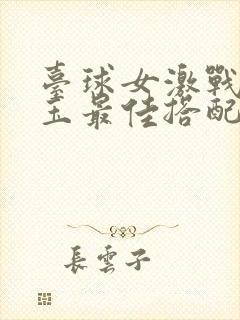 臺球女激戰
玉最佳搭配
長雲子